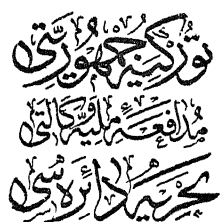 توركيه جمهوريتى
مدافعۀ مليه وكالتى
بحريه دائره سى